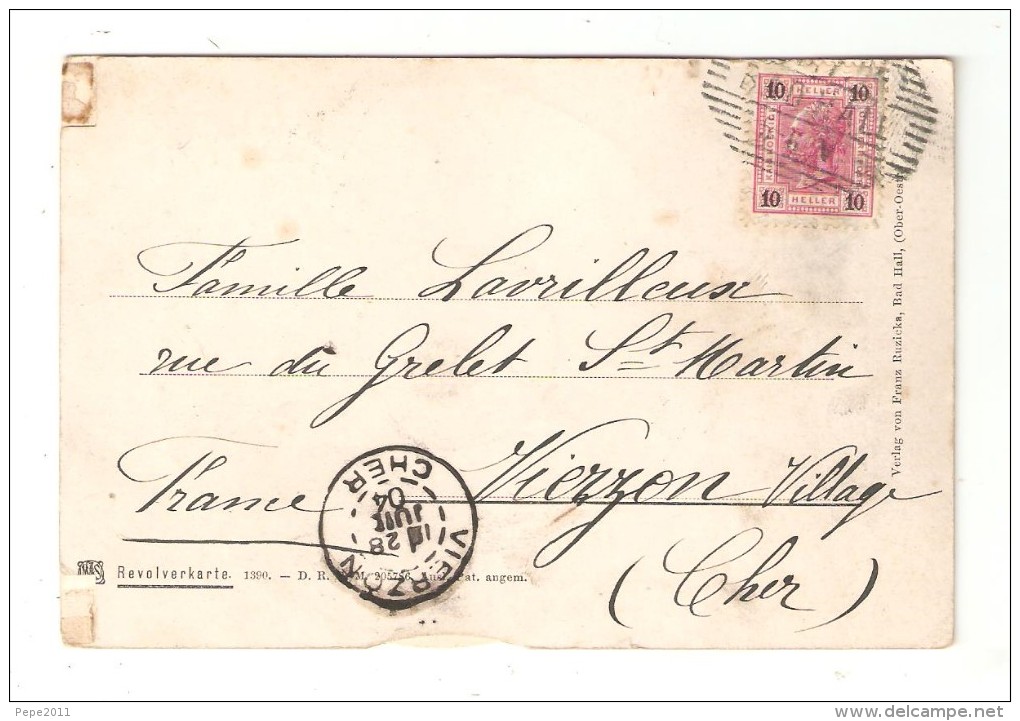 10 HELLER 10
10 HELLER 10
Famille Lavrilleux
rue du Grelet St Martin
France Vierzon Village
(Cher)
VIERZON
CHER
28
JUIN
04
Revolverkarte. 1390. — D. R. G. M. 205756. Ausl. Pat. angem.
Verlag von Franz Ruzicka, Bad Hall, (Ober-Oest
Pepe2011
delcampe.net